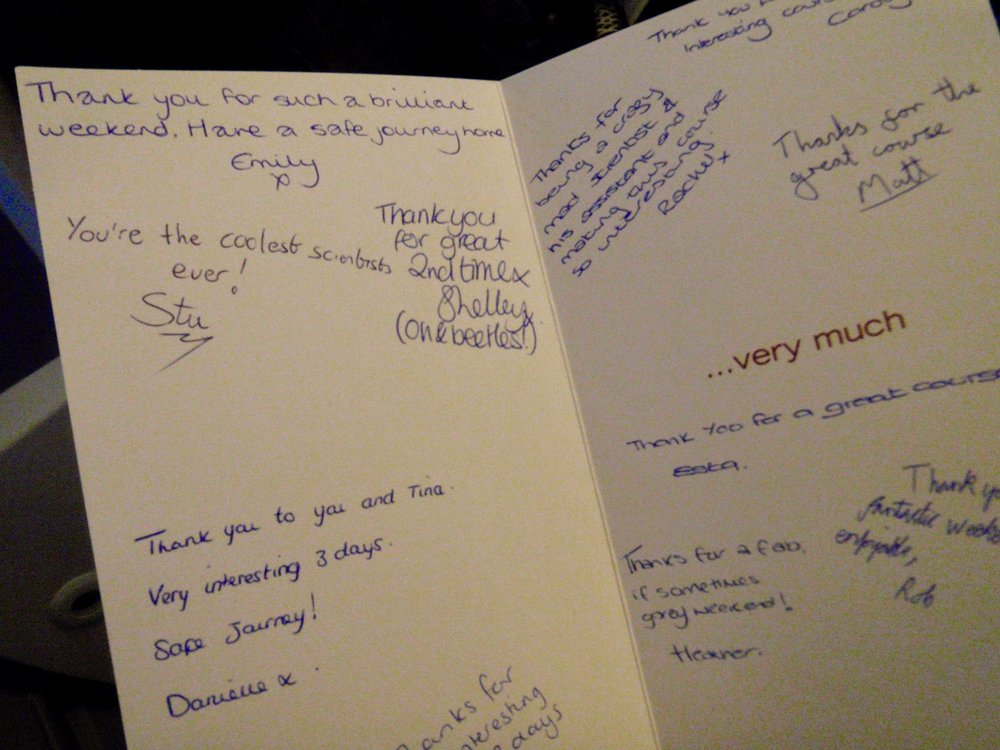 Thank you for such a brilliant
weekend. Have a safe journey home
Emily
x
You're the coolest scientists
ever!
Stu
Thankyou
for great
2nd time x
Shelley
(One beetles!)
Thank you to you and Tina.
Very interesting 3 days.
Safe Journey!
Danielle x
anks for
nteresting
days
Thank you
Interesting
Thanks for
being a crazy
mad scientist &
his assistant and
making this course
so interesting
Rachel x
Thanks for the
great course
Matt
...very much
Thank You for a great course
Thanks for a fab,
if sometimes
grey weekend!
Heather.
Thank y
fantastic weeke
enjoyable,
Rob